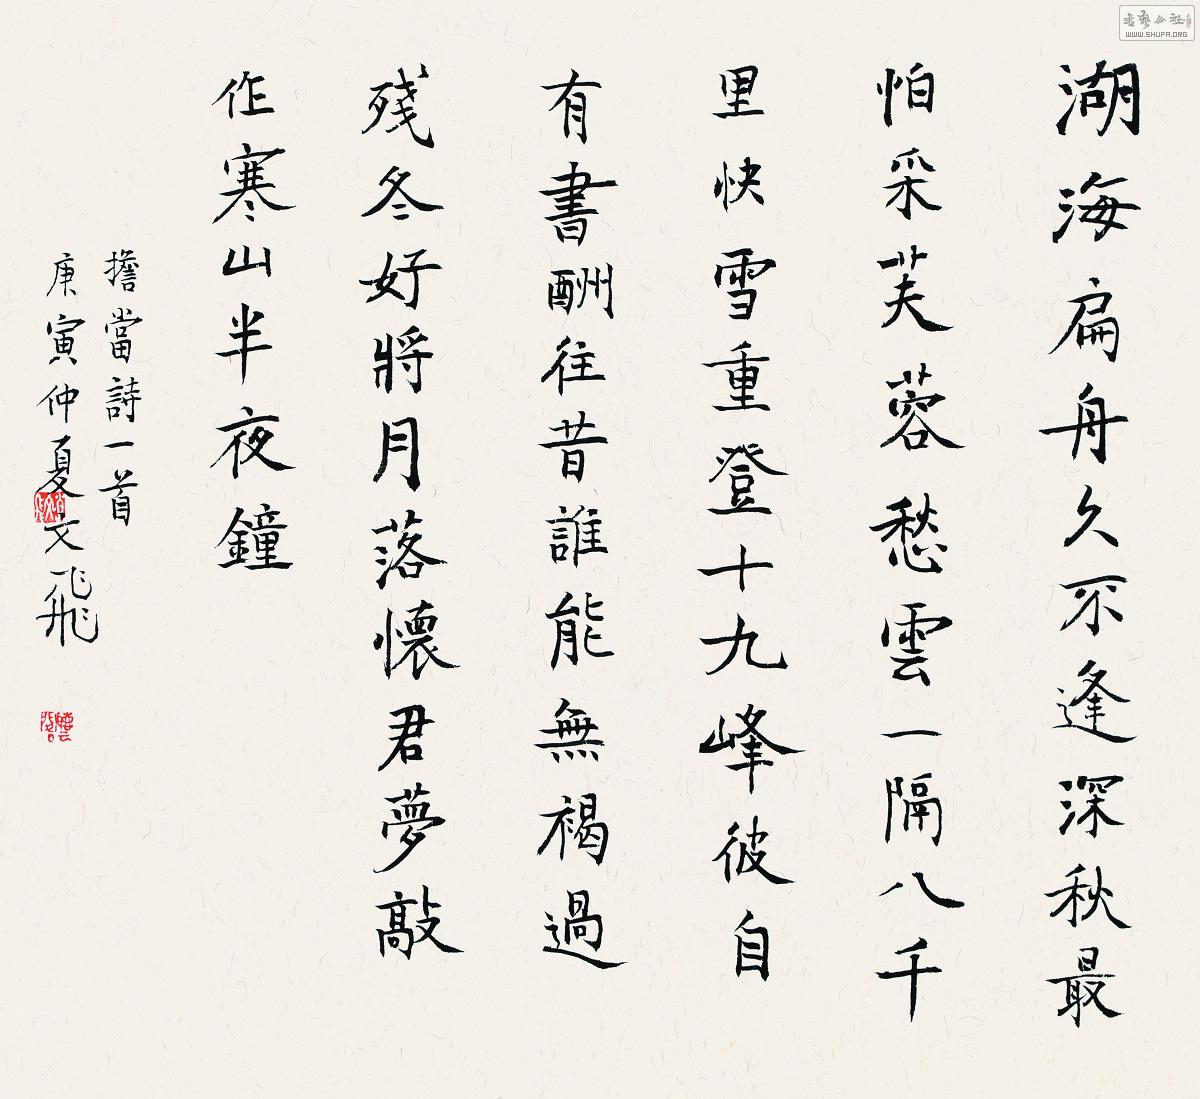 湖海扁舟久不逢深秋最
怕采芙蓉愁雲一隔八千
里快雪重登十九峰彼自
有書酬往昔誰能無褐過
殘冬好將月落懷君夢敲
作寒山半夜鐘
擔當詩一首
庚寅仲夏文飛
書藝公社
WWW.SHUFA.ORG